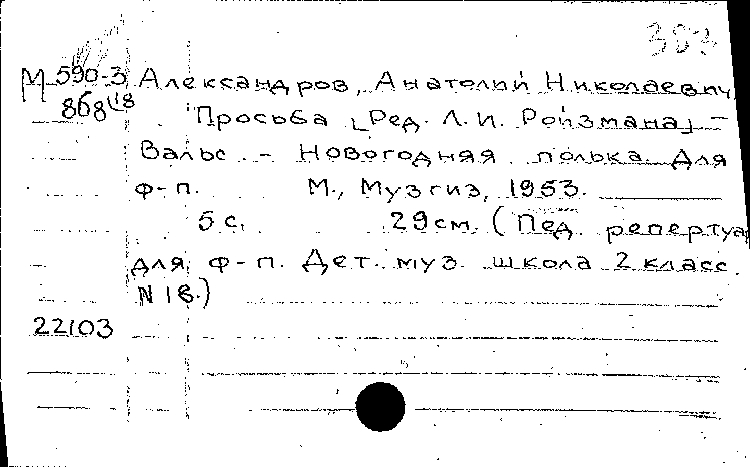 383
М 590-3 Александров, Анатолий Николаевич
868/18 Просьба [Ред. Л.И. Ройзмана] –
Вальс – Новогодняя полька для
ф-п. М., Музгиз, 1953.
5 с. 29 см. (Пед. репертуа
для ф-п. Дет. муз. школа 2 класс.
N 18.)
22103